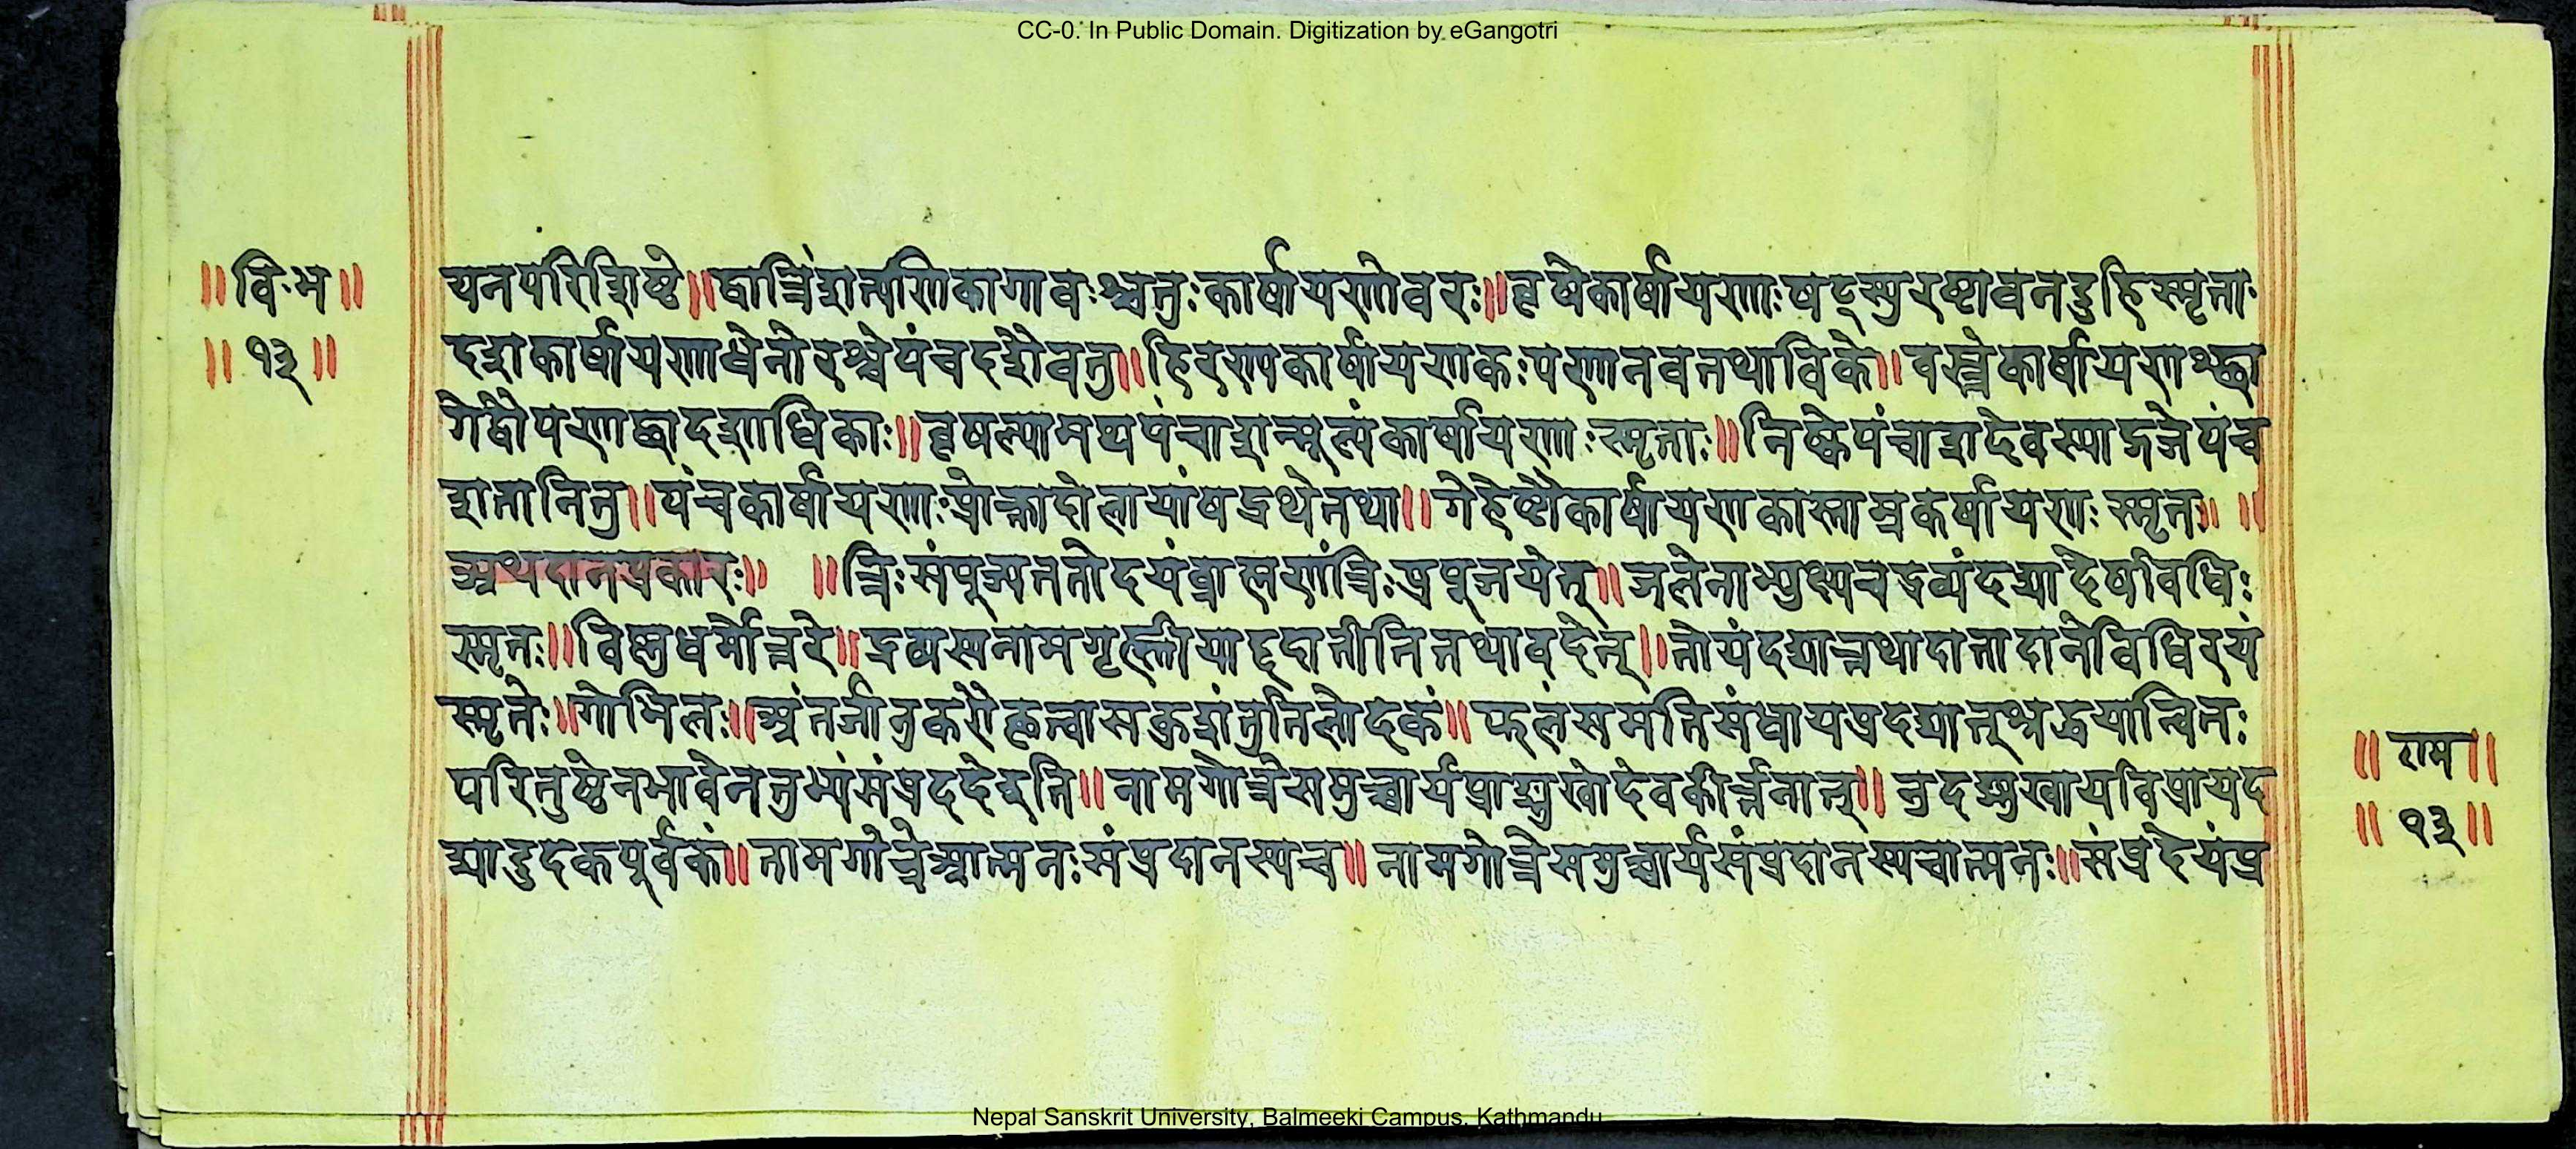 CC-0. In Public Domain. Digitization by eGangotri
॥वि.भ॥
॥१३॥
यनपरिशिष्टे॥द्वात्रिंशत्पणिकागावःश्चतुःकार्षापणोवरः॥वृषेकार्षापणाःषट्स्युरष्टावनडुहिस्मृताः
दशकार्षापणाधेनोरश्वेपंचदशैवतु॥हिरण्यकार्षापणकःपणानवतथाविके॥वस्त्रेकार्षापणश्छा
गेद्वौपणाद्वादशाधिकाः॥वृषल्यामथपंचाशन्मूल्यंकार्षापणाःस्मृताः॥निष्केपंचाशदेवस्याद्गजेपंच
शतानितु॥पंचकार्षापणाःप्रोक्तादोलायांषड्रथेतथा॥गेहेष्टौकार्षापणकास्ताम्रकर्षापणःस्मृतः॥ ॥
अथदानप्रकारः॥ ॥त्रिःसंपूज्यततोदयंब्राह्मणांत्रिःप्रपूजयेत्॥जलेनाभ्युक्ष्यचद्रव्यंदद्यादेषविधिः
स्मृतः॥विष्णुधर्मोत्तरे॥द्रव्यस्यनामगृह्णीयाद्ददानीतितथावदेत्॥तोयंदद्यात्तथादातादानेविधिरयं
स्मृतेः॥गोभिलः॥अंतर्जानुकरोकृत्वासकुशंतुतिलोदकं॥फलंसमतिसंधायप्रदद्यात्श्रद्धयान्वितः
परितुष्टेनभावेनतुभ्यंसंप्रददेइति॥नामगोत्रेसमुच्चार्यप्राङ्मुखोदेवकीर्त्तनात्॥उदङ्मुखायविप्रायद
द्यादुदकपूर्वकं॥नामगोत्रेआत्मनःसंप्रदानस्यच॥नामगोत्रेसमुच्चार्यसंप्रदानस्यचात्मनः॥संप्रदेयंप्र
॥राम॥
॥१३॥
Nepal Sanskrit University, Balmeeki Campus, Kathmandu